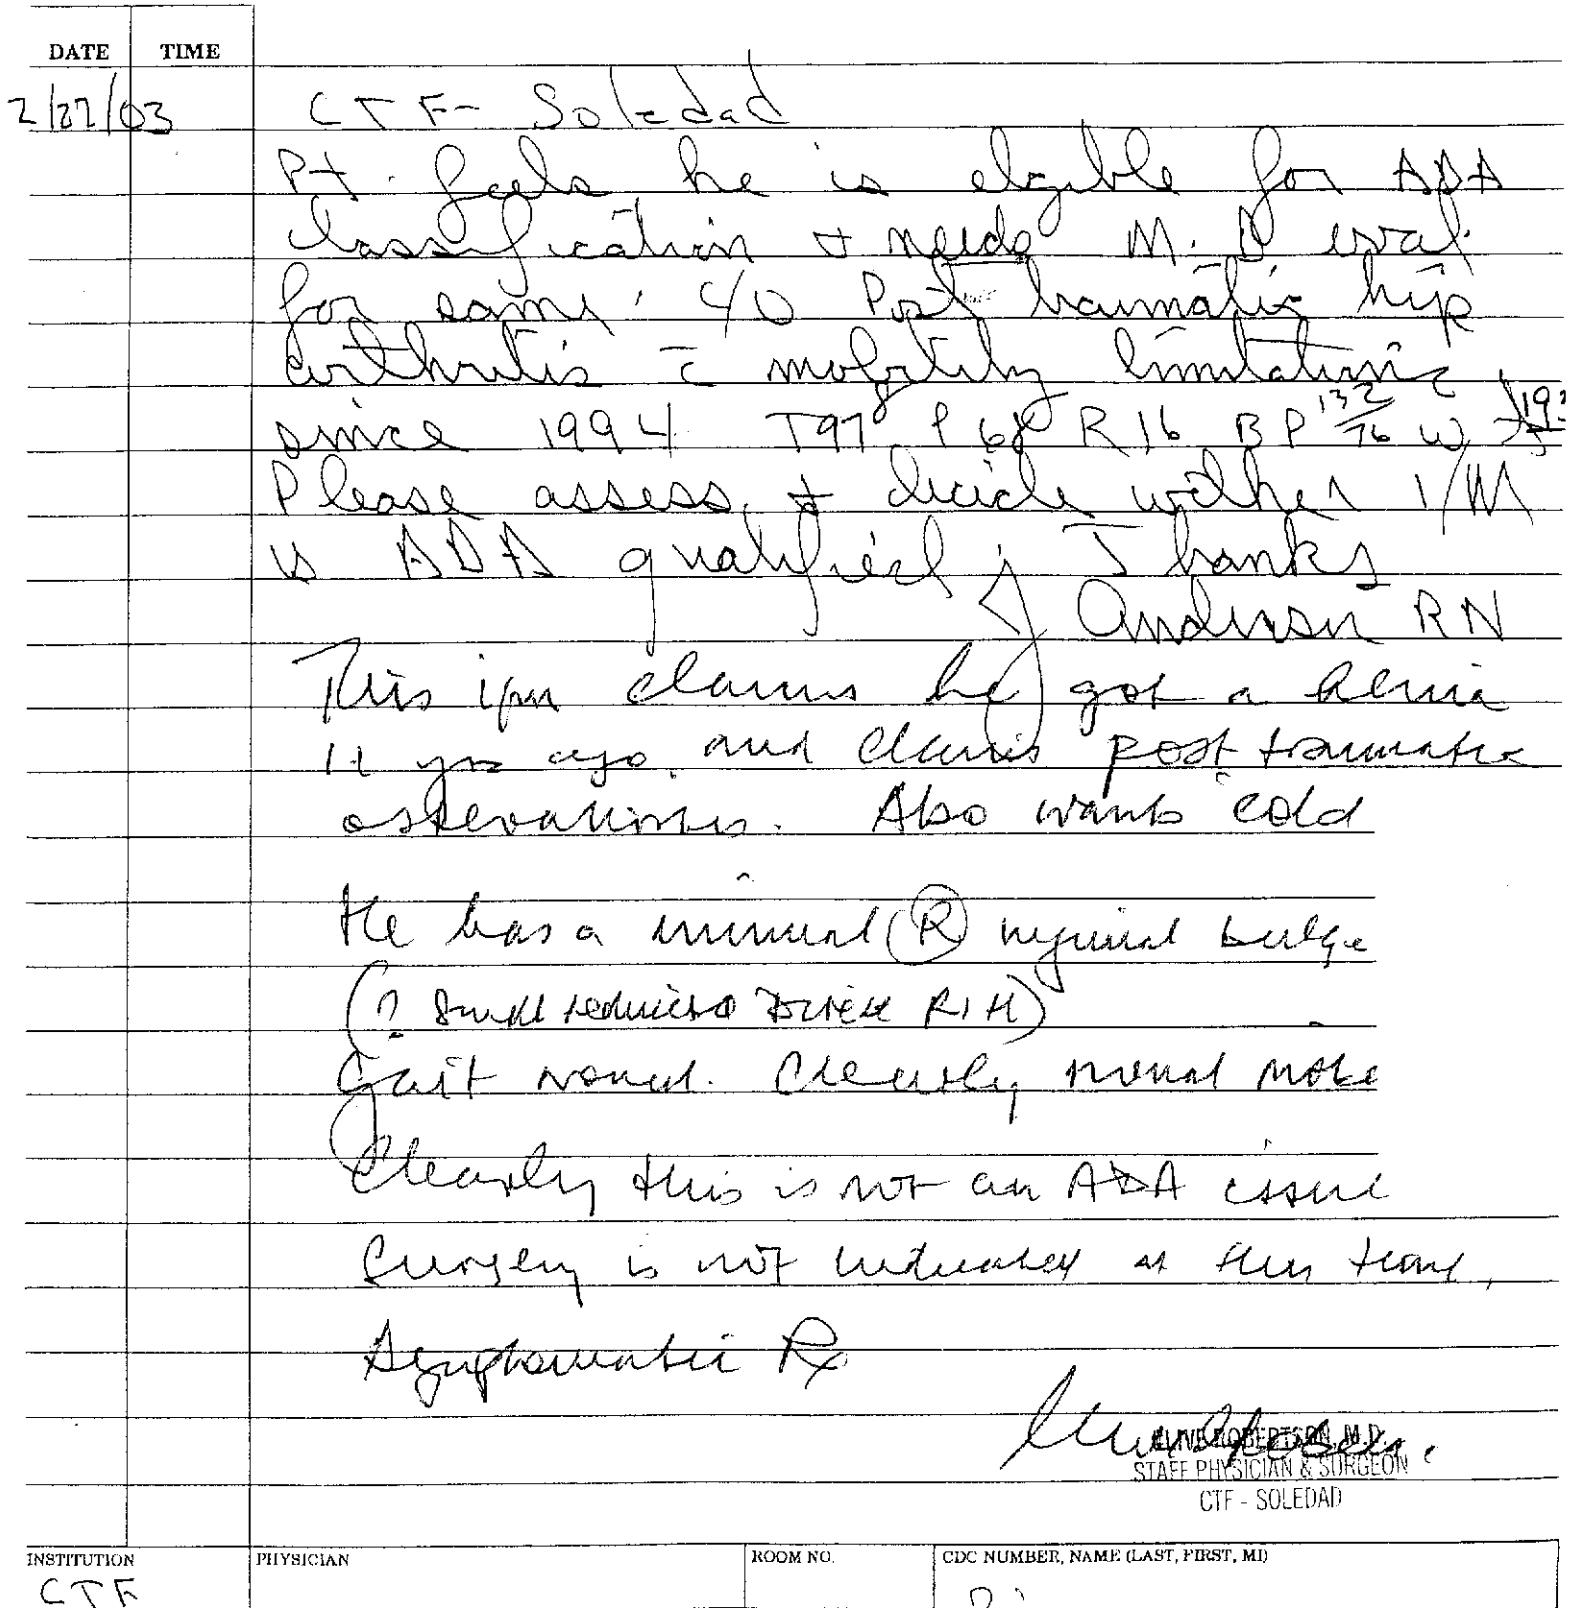 DATE TIME
2/27/03 CTF- Soledad
Pt. feels he is elgible for ADA
classification + needs M.D eval.
for same. C/O Post traumatic hip
arthritis c̄ mobility limitations
since 1994 T97 P 68 R 16 BP 132/76 W
Please assess + decide wither I/M
is ADA qualified; Thanks
Anderson RN
This claims he got a hernia
11 yrs ago, and claims post traumatic
Also wants cold
He has a minimal (R) inguinal bulge
(? Small reducible Direct RIH)
Gait normal. Clearly normal
Clearly this is not an ADA issue
Surgery is not indicated at this time.
Symptomatic Rx
CLIVE ROBERTSON, M.D.
STAFF PHYSICIAN & SURGEON
CTF - SOLEDAD
INSTITUTION PHYSICIAN ROOM NO. CDC NUMBER, NAME (LAST, FIRST, MI)
CTF